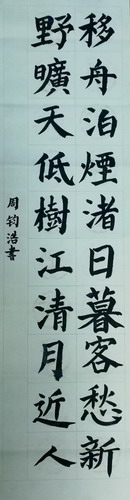 移舟泊煙渚日暮客愁新
野曠天低樹江清月近人
周钧浩書